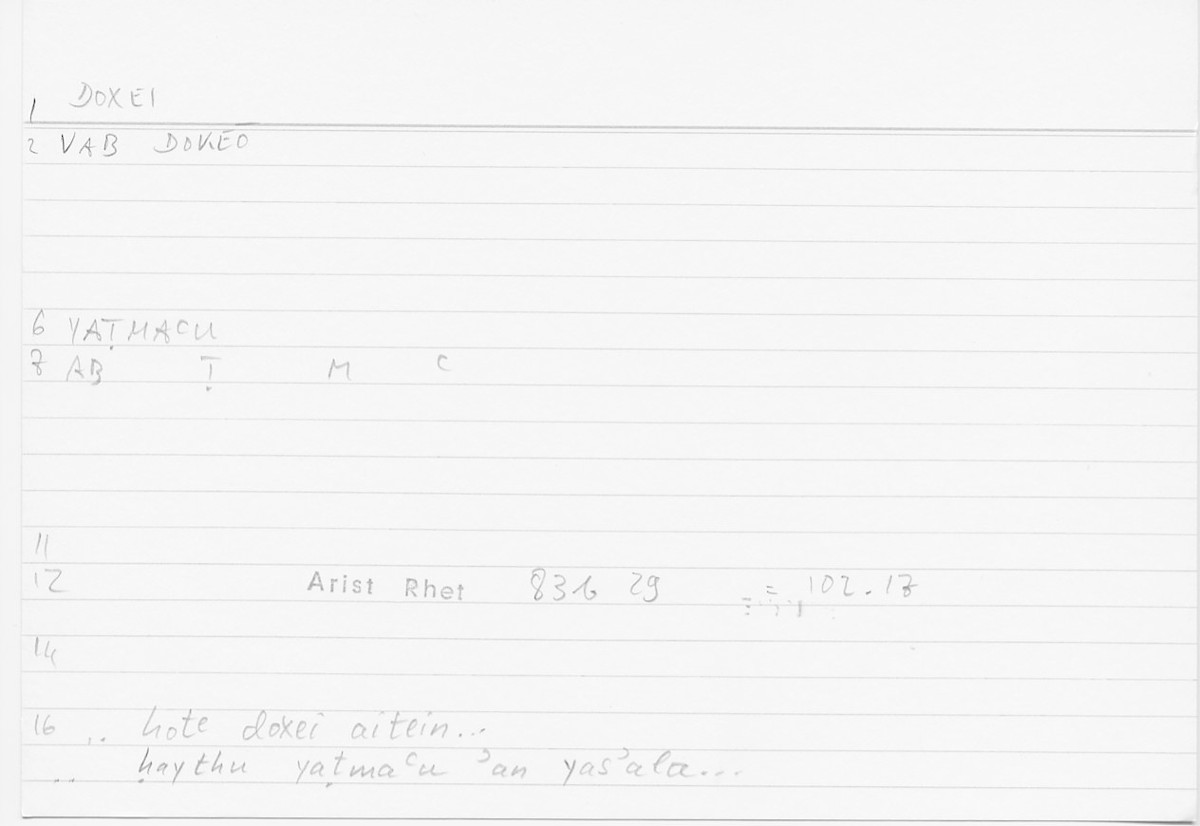 1 DOXEI
2 VAB DOKĒO
6 YAṬMAʿU
7 AB Ṭ M ʿ
11
12 Arist Rhet 83b 29 = 102.17
14
16 .. hote doxei aitein...
.. ḥaythu yaṭmaʿu ʾan yasʾala...